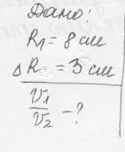 Дано:
R₁ = 8 см
ΔR = 3 см
υ₁/υ₂ - ?